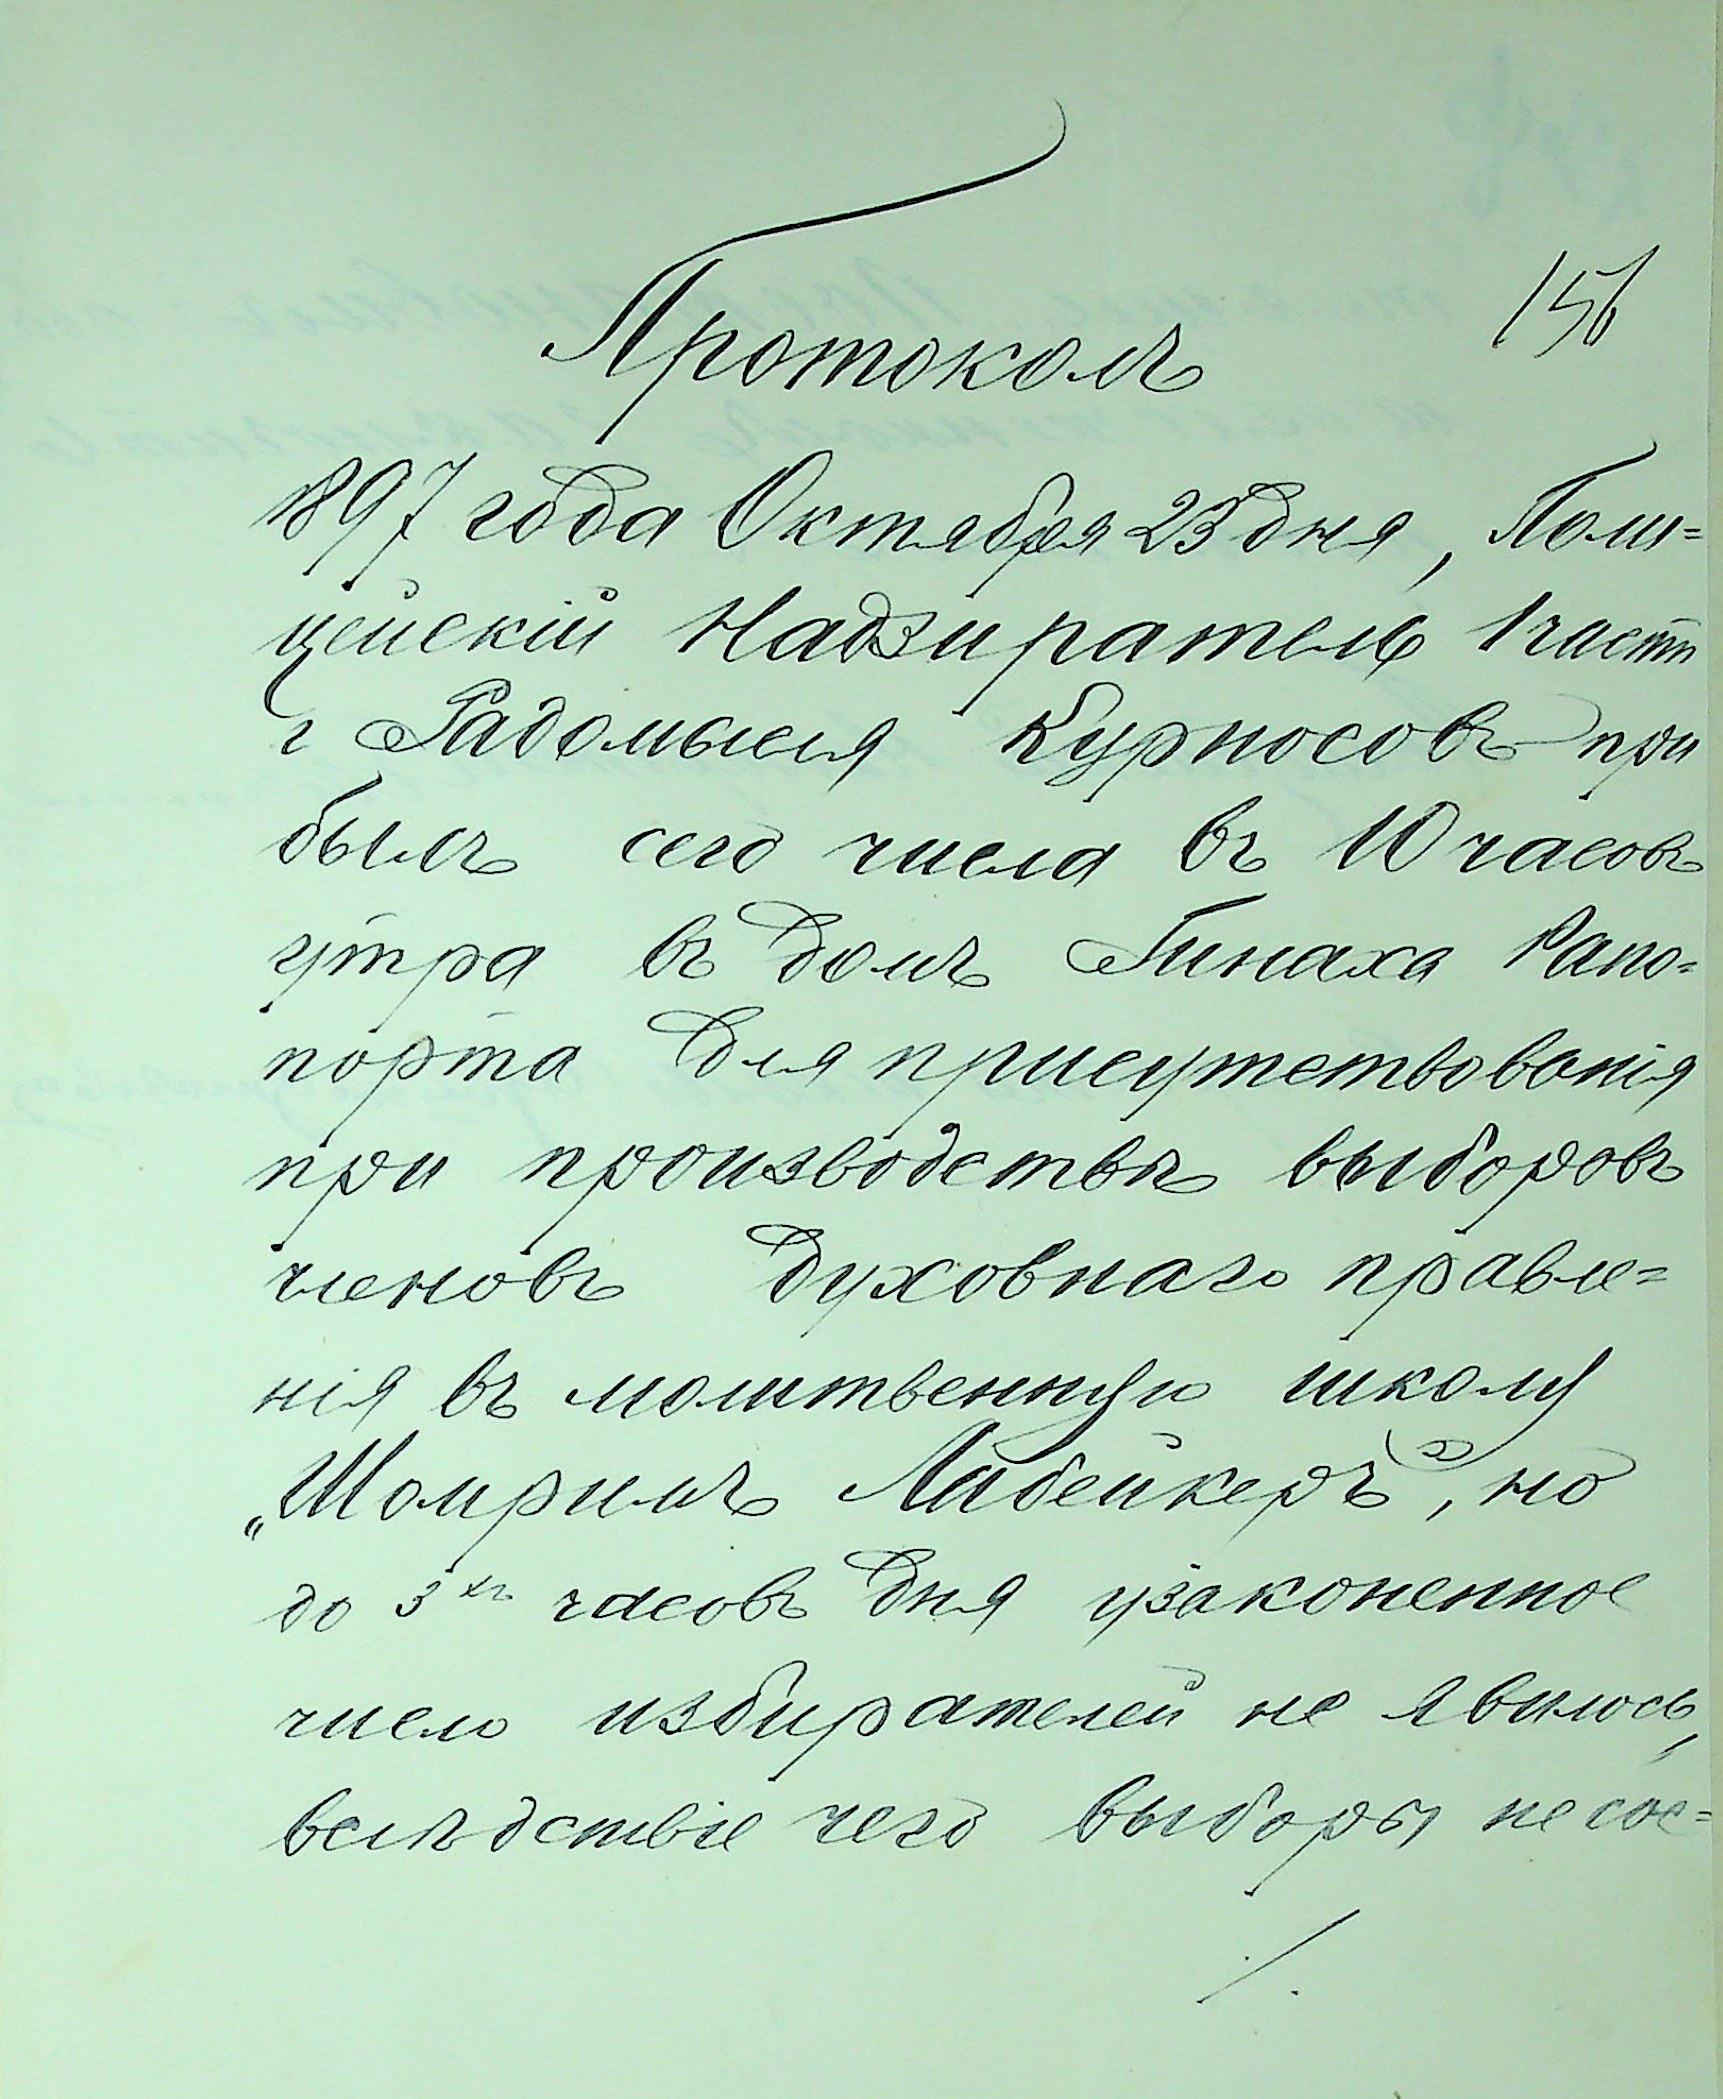 156
Протоколъ
1897 года Октября 23 дня, Поли=
цейскій Надзиратель 1 части
г Радомысля Курносовъ при
былъ сего числа въ 10 часовъ
утра въ домъ Пинхаса Рапо=
порта для присутствованія
при производствѣ выборовъ
членовъ духовнаго правле=
нія въ молитвенную школу
„Шомримъ Либейкеръ“, но
до 3хъ часовъ дня узаконенное
число избирателей не явилось,
вслѣдствіе чего выборы не сос=